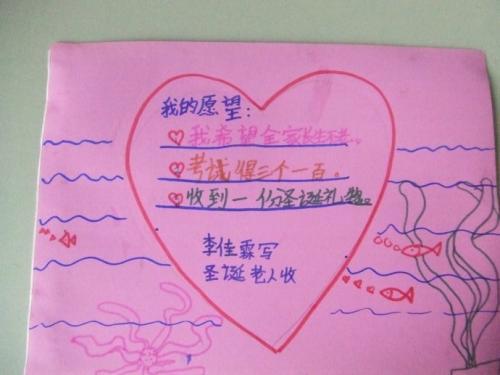 我的愿望：
我希望全家长生不老。
考试得三个一百。
收到一份圣诞礼物。
李佳霖写
圣诞老人收